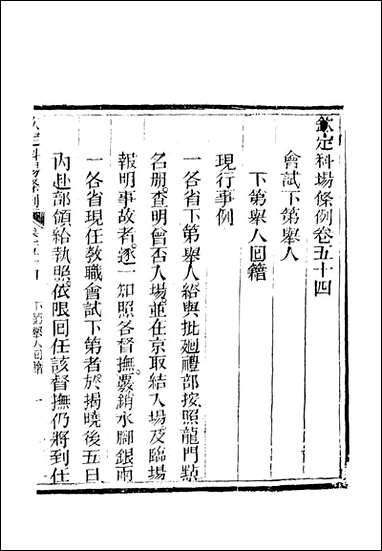 欽定科場條例卷五十四
會試下第舉人
下第舉人回籍
現行事例
一各省下第舉人給與批廻禮部按照龍門點
名册。查明曾否入場。並在京取結入場及臨場
報明事故者。逐一知照各督撫。覈銷水腳銀兩
一各省現任敎職會試下第者。於揭曉後五日
內赴部領給執照。依限回任。該督撫仍將到任
欽定科場條例
卷五十四
下第舉人回籍
一